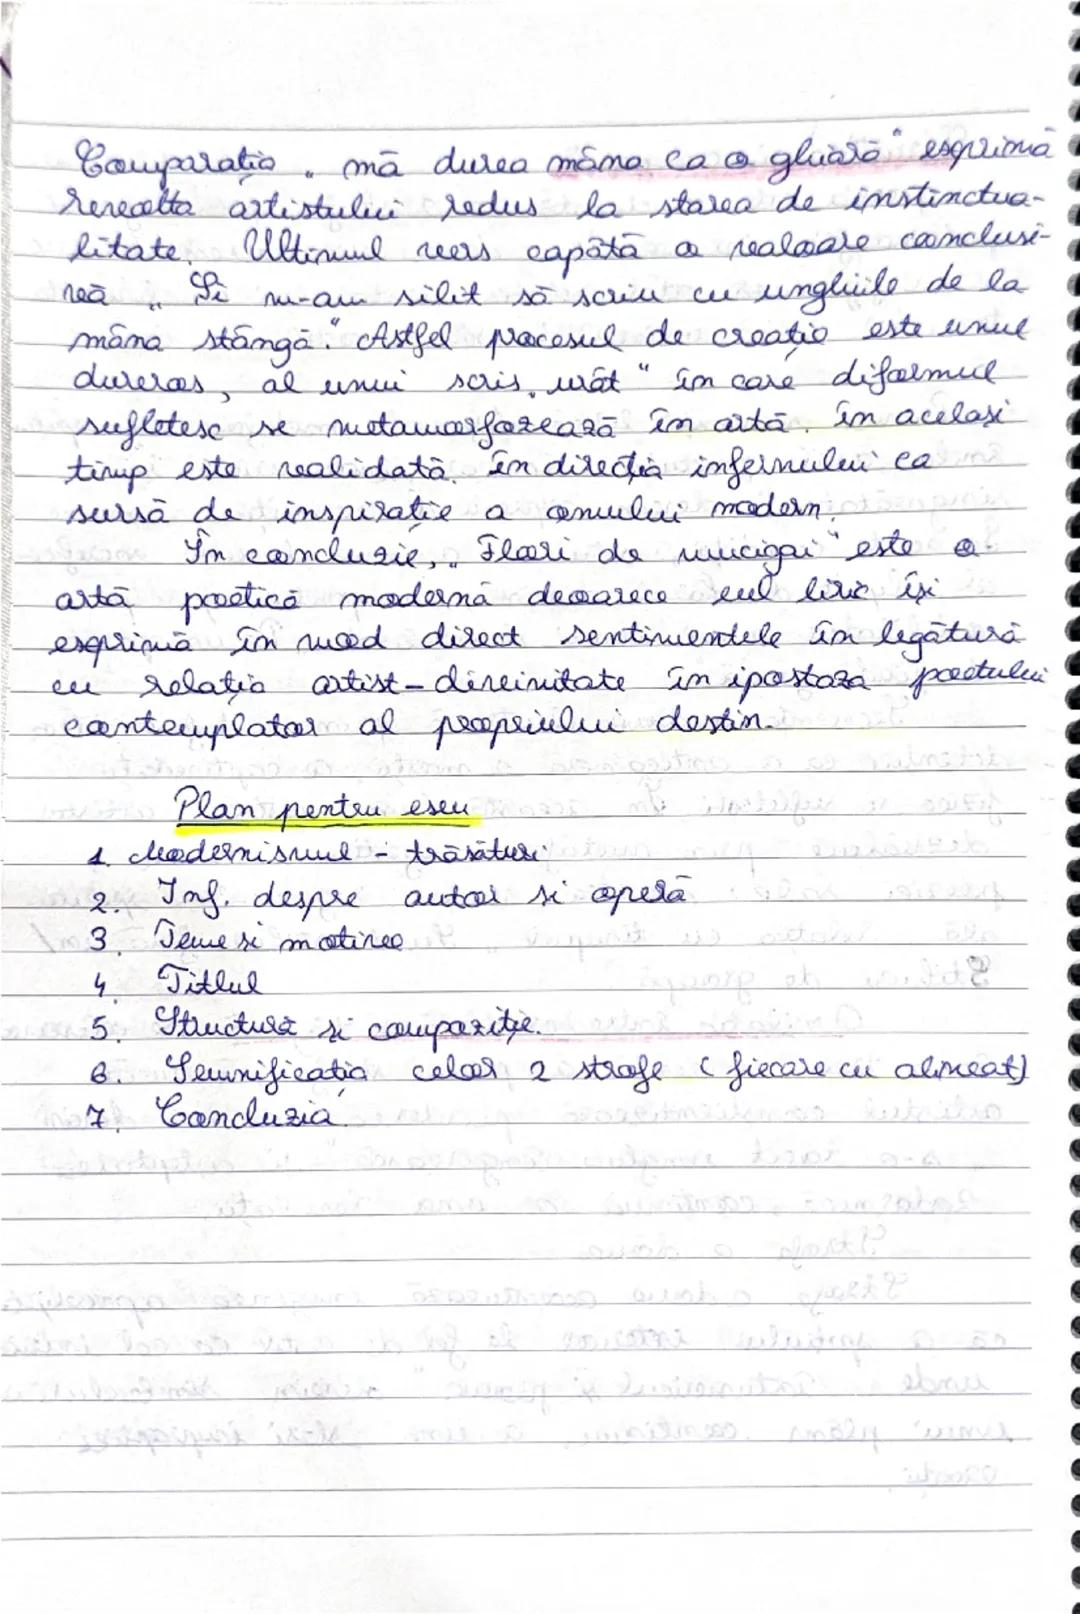 Comparația „mă durea mâna ca o ghiară" exprimă
revolta artistului redus la starea de instinctua-
litate. Ultimul vers capătă o valoare conclusi-
vă „Și m-am silit să scriu cu unghiile de la
mâna stângă." Astfel procesul de creație este unul
dureros, al unui scris „urât" în care diformul
sufletesc se metamorfozează în artă. În același
timp este validată în direcția infernului ca
sursă de inspirație a omului modern.
În concluzie, „Flori de mucigai" este o
artă poetică modernă deoarece eul liric își
exprimă în mod direct sentimentele în legătură
cu relația artist-divinitate în ipostaza poetului
contemplator al propriului destin.
Plan pentru eseu
1. Modernismul - trăsături
2. Inf. despre autor și operă
3. Teme și motive
4. Titlul
5. Structură și compoziție.
6. Semnificația celor 2 strofe (fiecare cu alineat)
7. Concluzia